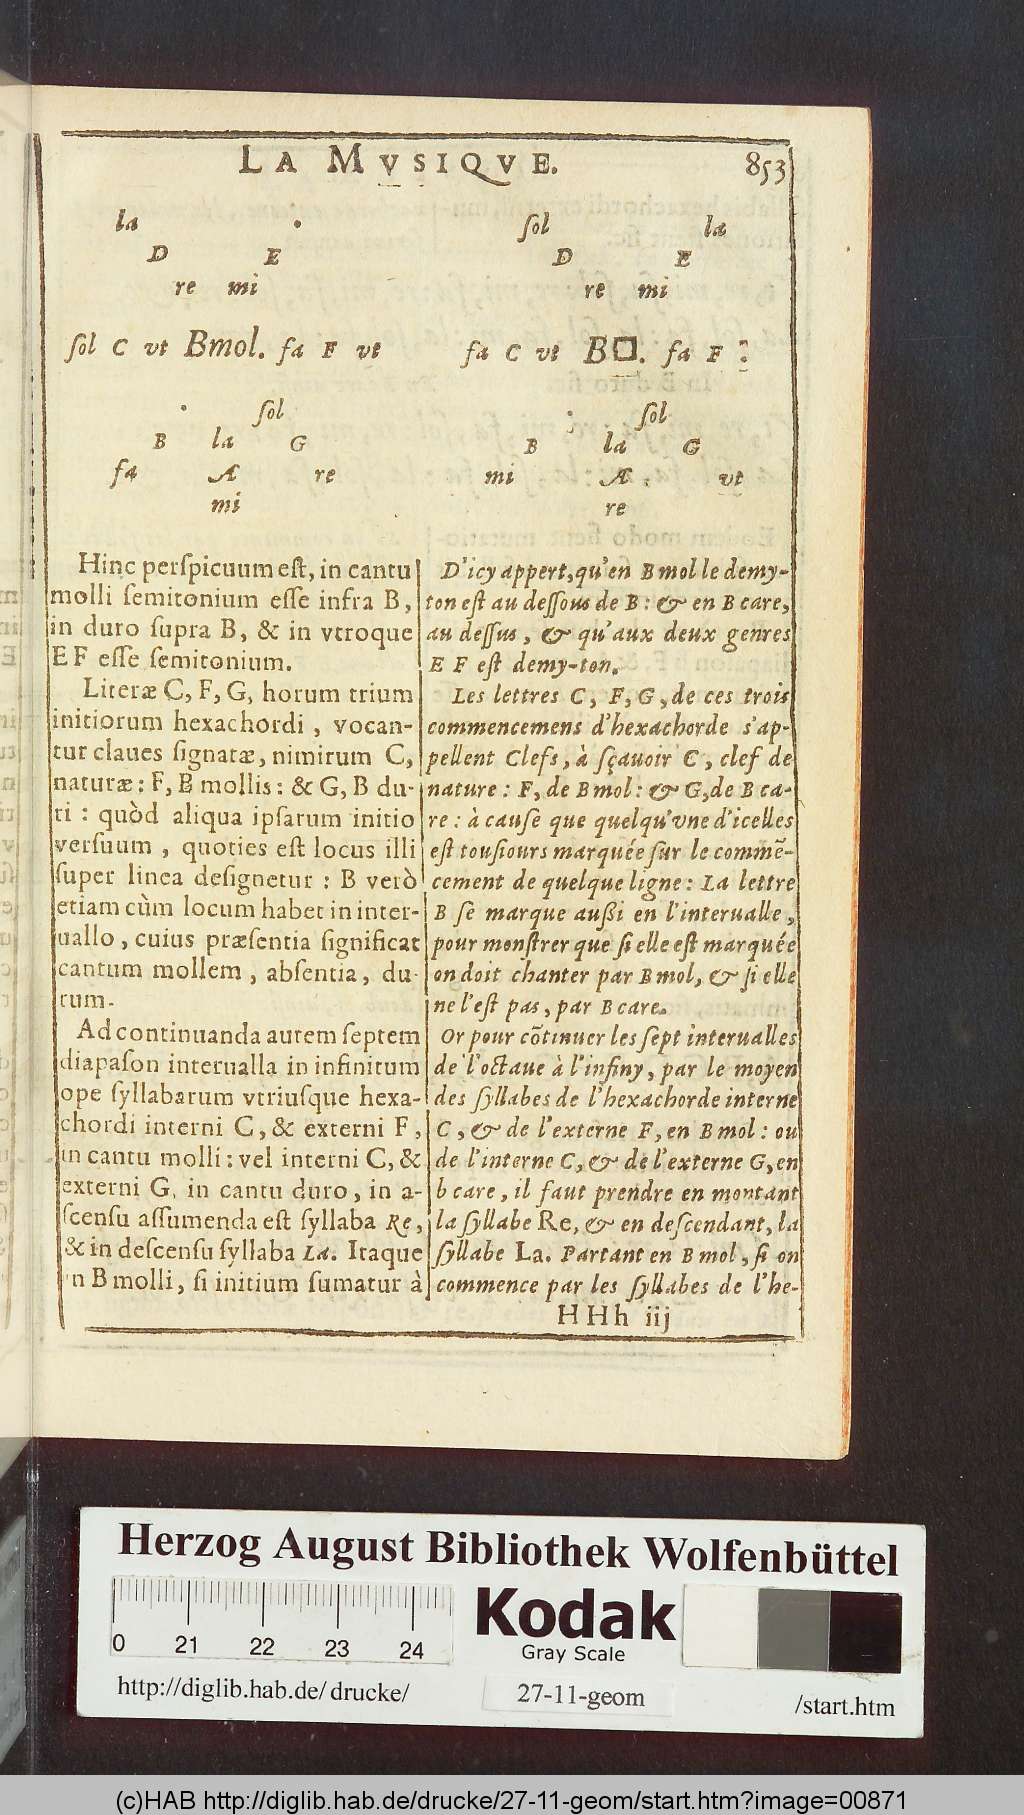 LA MVSIQVE. 853
la · ſol la
D E D E
re mi re mi
ſol C vt Bmol. fa F vt fa C vt B□. fa F
· ſol · ſol
B la G B la G
fa Æ re mi Æ vt
mi re
Hinc perſpicuum eſt, in cantu
molli ſemitonium eſſe infra B,
in duro ſupra B, & in vtroque
E F eſſe ſemitonium.
Literæ C, F, G, horum trium
initiorum hexachordi, vocan-
tur claues ſignatæ, nimirum C,
naturæ: F, B mollis: & G, B du-
ri: quòd aliqua ipſarum initio
verſuum, quoties eſt locus illi
ſuper linea deſignetur: B verò
etiam cùm locum habet in inter-
uallo, cuius præſentia ſignificat
cantum mollem, abſentia, du-
rum.
Ad continuanda autem ſeptem
diapaſon interualla in infinitum
ope ſyllabarum vtriuſque hexa-
chordi interni C, & externi F,
in cantu molli: vel interni C, &
externi G, in cantu duro, in a-
ſcenſu aſſumenda eſt ſyllaba Re,
& in deſcenſu ſyllaba La. Itaque
in B molli, ſi initium ſumatur à
D'icy appert, qu'en B mol le demy-
ton eſt au deſſous de B: & en B care,
au deſſus, & qu'aux deux genres
E F eſt demy-ton.
Les lettres C, F, G, de ces trois
commencemens d'hexachorde s'ap-
pellent Clefs, à ſçauoir C, clef de
nature: F, de B mol: & G, de B ca-
re: à cauſe que quelqu'vne d'icelles
eſt touſiours marquée ſur le commẽ-
cement de quelque ligne: La lettre
B ſe marque außi en l'interualle,
pour monſtrer que ſi elle eſt marquée
on doit chanter par B mol, & ſi elle
ne l'eſt pas, par B care.
Or pour cõtinuer les ſept interualles
de l'octaue à l'infiny, par le moyen
des ſyllabes de l'hexachorde interne
C, & de l'externe F, en B mol: ou
de l'interne C, & de l'externe G, en
b care, il faut prendre en montant
la ſyllabe Re, & en deſcendant, la
ſyllabe La. Partant en B mol, ſi on
commence par les ſyllabes de l'he-
HHh iij
Herzog August Bibliothek Wolfenbüttel
0 21 22 23 24
Kodak
Gray Scale
http://diglib.hab.de/drucke/ 27-11-geom /start.htm
(c)HAB http://diglib.hab.de/drucke/27-11-geom/start.htm?image=00871